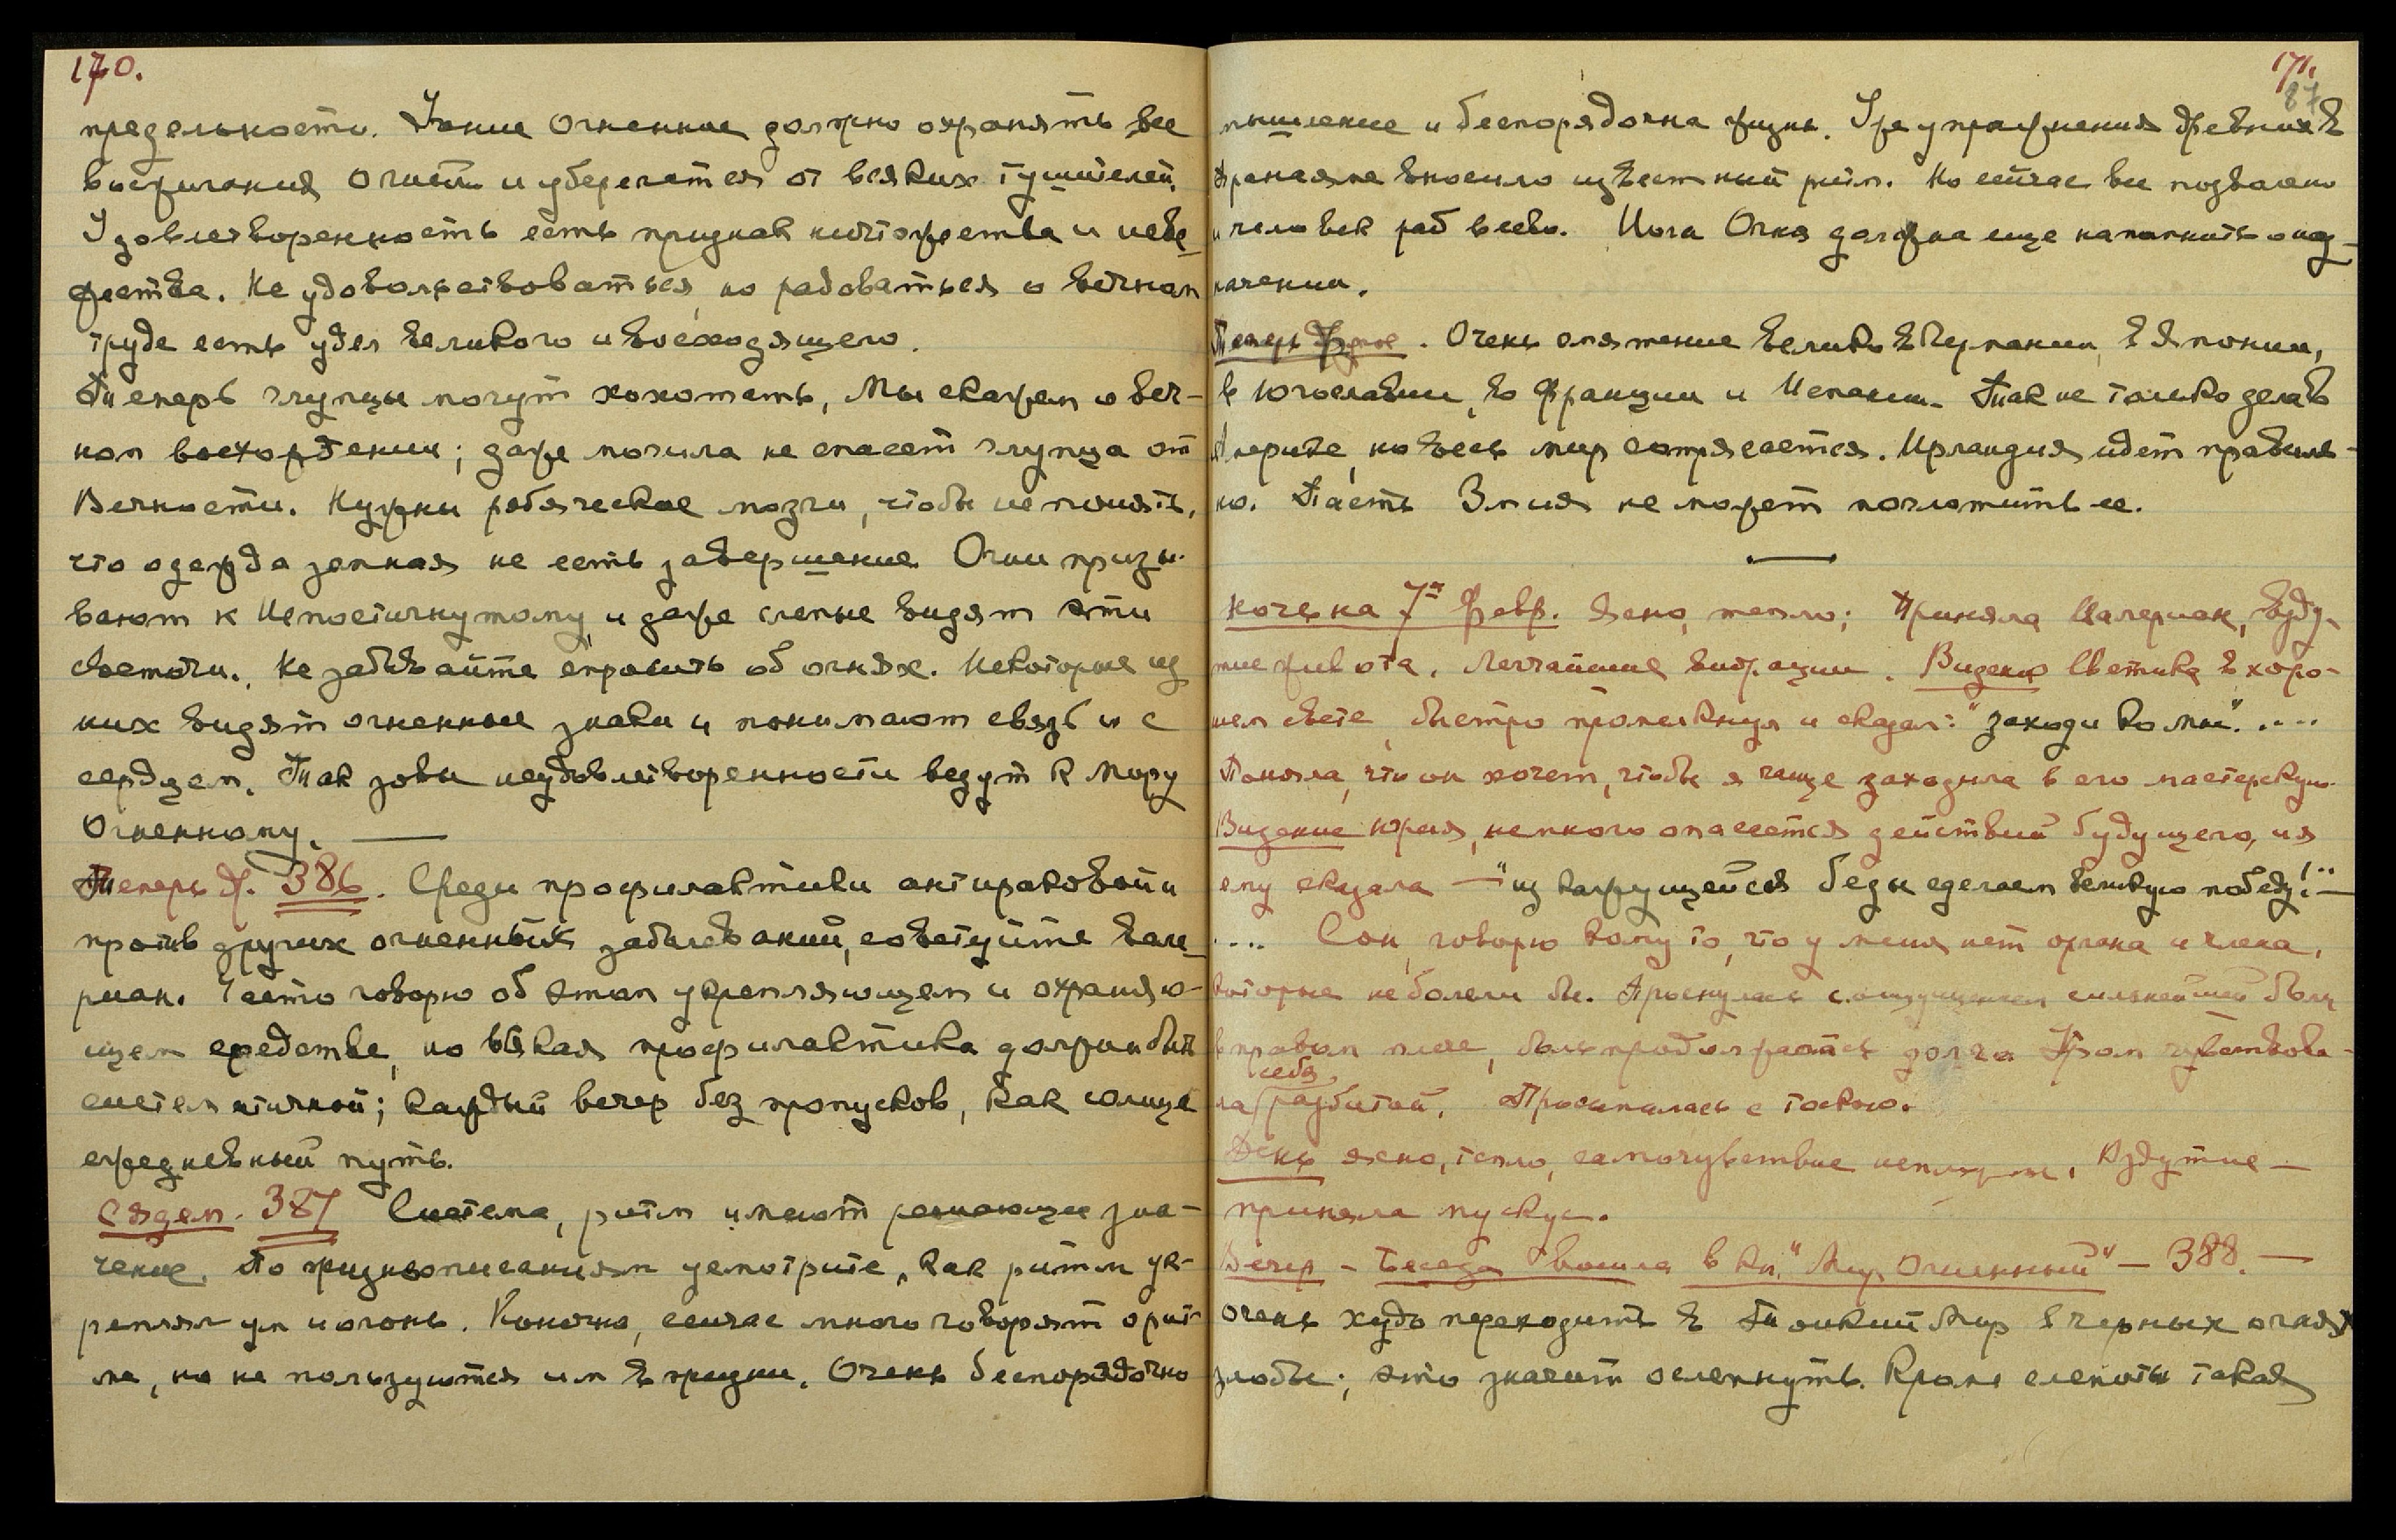 170.
предельности. Учение Огненное должно охранять все
вспыхания Огней и уберегаться от всяких тушителей.
Удовлетворенность есть признак ничтожества и неве
жества. Не удовольствоваться, но радоваться о вечном
труде есть удел великого и восходящего.
Теперь глупцы могут хохотать, Мы скажем о веч-
ном восхождении; даже могила не спасет глупца от
Вечности. Нужны рабические мозги, чтобы не понять,
что одежда земная не есть завершение. Огни призы-
вают к Непостигнутому, и даже слепые видят эти
светочи. Не забывайте спросить об огнях. Некоторые из
них видят огненные знаки и понимают связь и с
сердцем. Так зовы неудовлетворенности ведут к Миру
Огненному. —
Теперь др. 386. Среди профилактики антираковой и
против других огненных заболеваний, советуйте вале-
риан. Часто говорю об этом укрепляющем и охраняю-
щем средстве, но всякая профилактика должна быть
систематичной; каждый вечер без пропусков, как солнце
ежедневный путь.
Сядем. 387 Система, ритм имеют решающее зна-
чение. По жизнеописаниям усмотрите, как ритм ук-
реплял ум и огонь. Конечно, сейчас много говорят о рит-
ме, но не пользуются им в жизни. Очень беспорядочно
171.
87
мышление и беспорядочна жизнь. Уже упражнения древних в
Пранаяме вносило известный ритм. Но сейчас все позволено
и человек раб всего. Йога Огня должна еще напомнить о наз-
начении.
Теперь другое. Очень смятение велико в Германии, в Японии,
в Югославии, во Франции и Испании. Так не только дела в
Америке, но весь мир сотрясается. Ирландия идет правиль-
но. Пасть Змия не может поглотить ее.
Ночь на 7ое Февр. Ясно, тепло; Приняла Валериан, взду-
тие живота. Легчайшие вибрации. Видение Светика в хоро-
шем свете, быстро промелькнул и сказал: "заходи ко мне"....
Поняла, что он хочет, чтобы я чаще заходила в его мастерскую.
Видение Юрия, немного опасается действий будущего, и я
ему сказала — "из кажущейся беды сделаем великую победу!" —
.... Сон, говорю кому то, что у меня нет органа и члена,
которые не болели бы. Проснулась с ощущением сильнейшей боли
в правом плече, боль продолжалась долго. Утром чувствова-
ла себя разбитой. Просыпалась с тоскою.
День ясно, тепло, самочувствие неплохое. Вздутие —
приняла мускус.
Вечер - Беседа вошла в кн. "Мир Огненный" — 388. —
Очень худо переходить в Тонкий Мир в черных огнях
злобы; это значит ослепнуть. Кроме слепоты такая